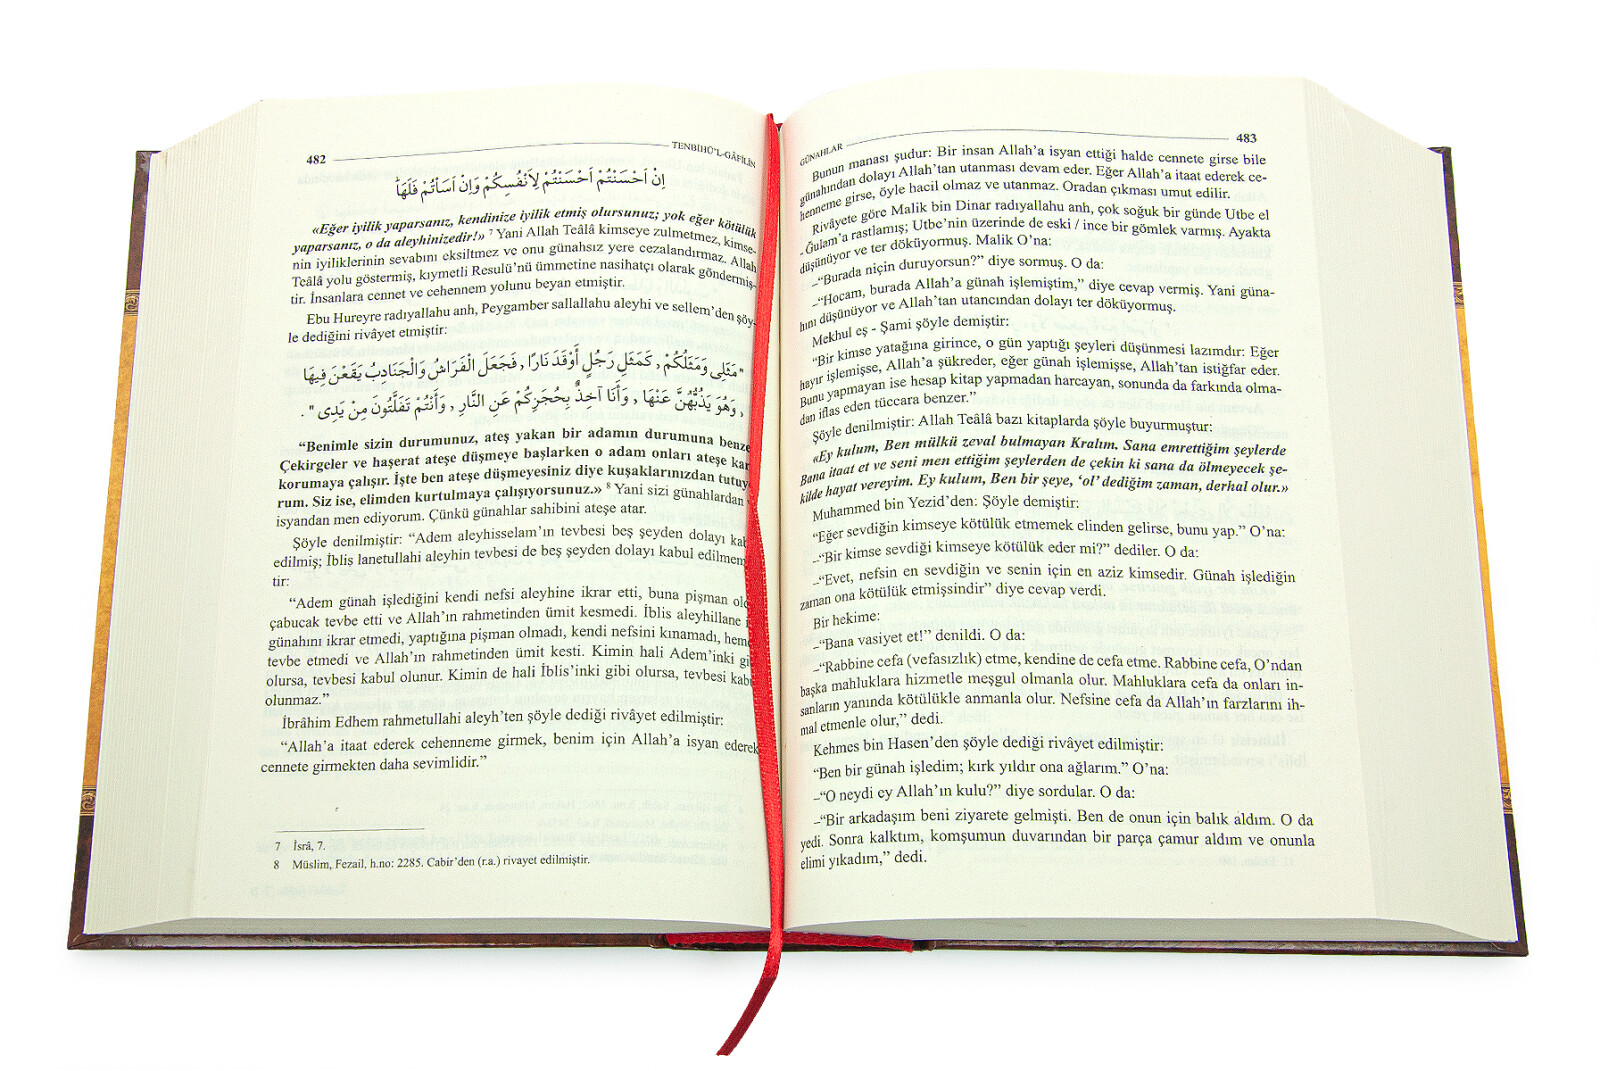 482 TENBİHÜ’L-GÂFİLÎN
اِنْ اَحْسَنْتُمْ اَحْسَنْتُمْ لِاَنْفُسِكُمْ وَاِنْ اَسَأْتُمْ فَلَهَا
«Eğer iyilik yaparsanız, kendinize iyilik etmiş olursunuz; yok eğer kötülük
yaparsanız, o da aleyhinizedir!» 7 Yani Allah Teâlâ kimseye zulmetmez, kimse-
nin iyiliklerinin sevabını eksiltmez ve onu günahsız yere cezalandırmaz. Allah
Teâlâ yolu göstermiş, kıymetli Resulü’nü ümmetine nasihatçı olarak göndermiş-
tir. İnsanlara cennet ve cehennem yolunu beyan etmiştir.
Ebu Hureyre radıyallahu anh, Peygamber sallallahu aleyhi ve sellem’den şöy-
le dediğini rivâyet etmiştir:
"مَثَلِى وَمَثَلُكُمْ , كَمَثَلِ رَجُلٍ أَوْقَدَ نَارًا , فَجَعَلَ الْفَرَاشُ وَالْجَنَادِبُ يَقَعْنَ فِيهَا
, وَهُوَ يَذُبُّهُنَّ عَنْهَا , وَأَنَا آخِذٌ بِحُجَزِكُمْ عَنِ النَّارِ , وَأَنْتُمْ تَفَلَّتُونَ مِنْ يَدِى " .
“Benimle sizin durumunuz, ateş yakan bir adamın durumuna benze
Çekirgeler ve haşerat ateşe düşmeye başlarken o adam onları ateşe kar
korumaya çalışır. İşte ben ateşe düşmeyesiniz diye kuşaklarınızdan tutuy
rum. Siz ise, elimden kurtulmaya çalışıyorsunuz.» 8 Yani sizi günahlardan
isyandan men ediyorum. Çünkü günahlar sahibini ateşe atar.
Şöyle denilmiştir: “Adem aleyhisselam’ın tevbesi beş şeyden dolayı kab
edilmiş; İblis lanetullahi aleyhin tevbesi de beş şeyden dolayı kabul edilmem
tir:
“Adem günah işlediğini kendi nefsi aleyhine ikrar etti, buna pişman old
çabucak tevbe etti ve Allah’ın rahmetinden ümit kesmedi. İblis aleyhillane i
günahını ikrar etmedi, yaptığına pişman olmadı, kendi nefsini kınamadı, heme
tevbe etmedi ve Allah’ın rahmetinden ümit kesti. Kimin hali Adem’inki gi
olursa, tevbesi kabul olunur. Kimin de hali İblis’inki gibi olursa, tevbesi kabu
olunmaz.”
İbrâhim Edhem rahmetullahi aleyh’ten şöyle dediği rivâyet edilmiştir:
“Allah’a itaat ederek cehenneme girmek, benim için Allah’a isyan ederek
cennete girmekten daha sevimlidir.”
7 İsrâ, 7.
8 Müslim, Fezail, h.no: 2285. Cabir’den (r.a.) rivayet edilmiştir.
GÜNAHLAR 483
Bunun manası şudur: Bir insan Allah’a isyan ettiği halde cennete girse bile
günahından dolayı Allah’tan utanması devam eder. Eğer Allah’a itaat ederek ce-
henneme girse, öyle hacil olmaz ve utanmaz. Oradan çıkması umut edilir.
Rivâyete göre Malik bin Dinar radıyallahu anh, çok soğuk bir günde Utbe el
- Ğulam’a rastlamış; Utbe’nin üzerinde de eski / ince bir gömlek varmış. Ayakta
düşünüyor ve ter döküyormuş. Malik O’na:
–“Burada niçin duruyorsun?” diye sormuş. O da:
–“Hocam, burada Allah’a günah işlemiştim,” diye cevap vermiş. Yani güna-
hını düşünüyor ve Allah’tan utancından dolayı ter döküyormuş.
Mekhul eş - Şami şöyle demiştir:
“Bir kimse yatağına girince, o gün yaptığı şeyleri düşünmesi lazımdır: Eğer
hayır işlemişse, Allah’a şükreder, eğer günah işlemişse, Allah’tan istiğfar eder.
Bunu yapmayan ise hesap kitap yapmadan harcayan, sonunda da farkında olma-
dan iflas eden tüccara benzer.”
Şöyle denilmiştir: Allah Teâlâ bazı kitaplarda şöyle buyurmuştur:
«Ey kulum, Ben mülkü zeval bulmayan Kralım. Sana emrettiğim şeylerde
Bana itaat et ve seni men ettiğim şeylerden de çekin ki sana da ölmeyecek şe-
kilde hayat vereyim. Ey kulum, Ben bir şeye, ‘ol’ dediğim zaman, derhal olur.»
Muhammed bin Yezid’den: Şöyle demiştir:
“Eğer sevdiğin kimseye kötülük etmemek elinden gelirse, bunu yap.” O’na:
–“Bir kimse sevdiği kimseye kötülük eder mi?” dediler. O da:
–“Evet, nefsin en sevdiğin ve senin için en aziz kimsedir. Günah işlediğin
zaman ona kötülük etmişsindir” diye cevap verdi.
Bir hekime:
–“Bana vasiyet et!” denildi. O da:
–“Rabbine cefa (vefasızlık) etme, kendine de cefa etme. Rabbine cefa, O’ndan
başka mahluklara hizmetle meşgul olmanla olur. Mahluklara cefa da onları in-
sanların yanında kötülükle anmanla olur. Nefsine cefa da Allah’ın farzlarını ih-
mal etmenle olur,” dedi.
Kehmes bin Hasen’den şöyle dediği rivâyet edilmiştir:
“Ben bir günah işledim; kırk yıldır ona ağlarım.” O’na:
–“O neydi ey Allah’ın kulu?” diye sordular. O da:
–“Bir arkadaşım beni ziyarete gelmişti. Ben de onun için balık aldım. O da
yedi. Sonra kalktım, komşumun duvarından bir parça çamur aldım ve onunla
elimi yıkadım,” dedi.